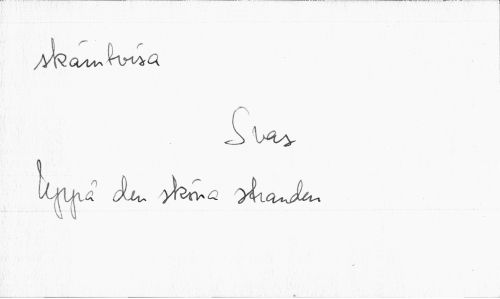 skämtvisa
Svas
Uppå den sköna stranden